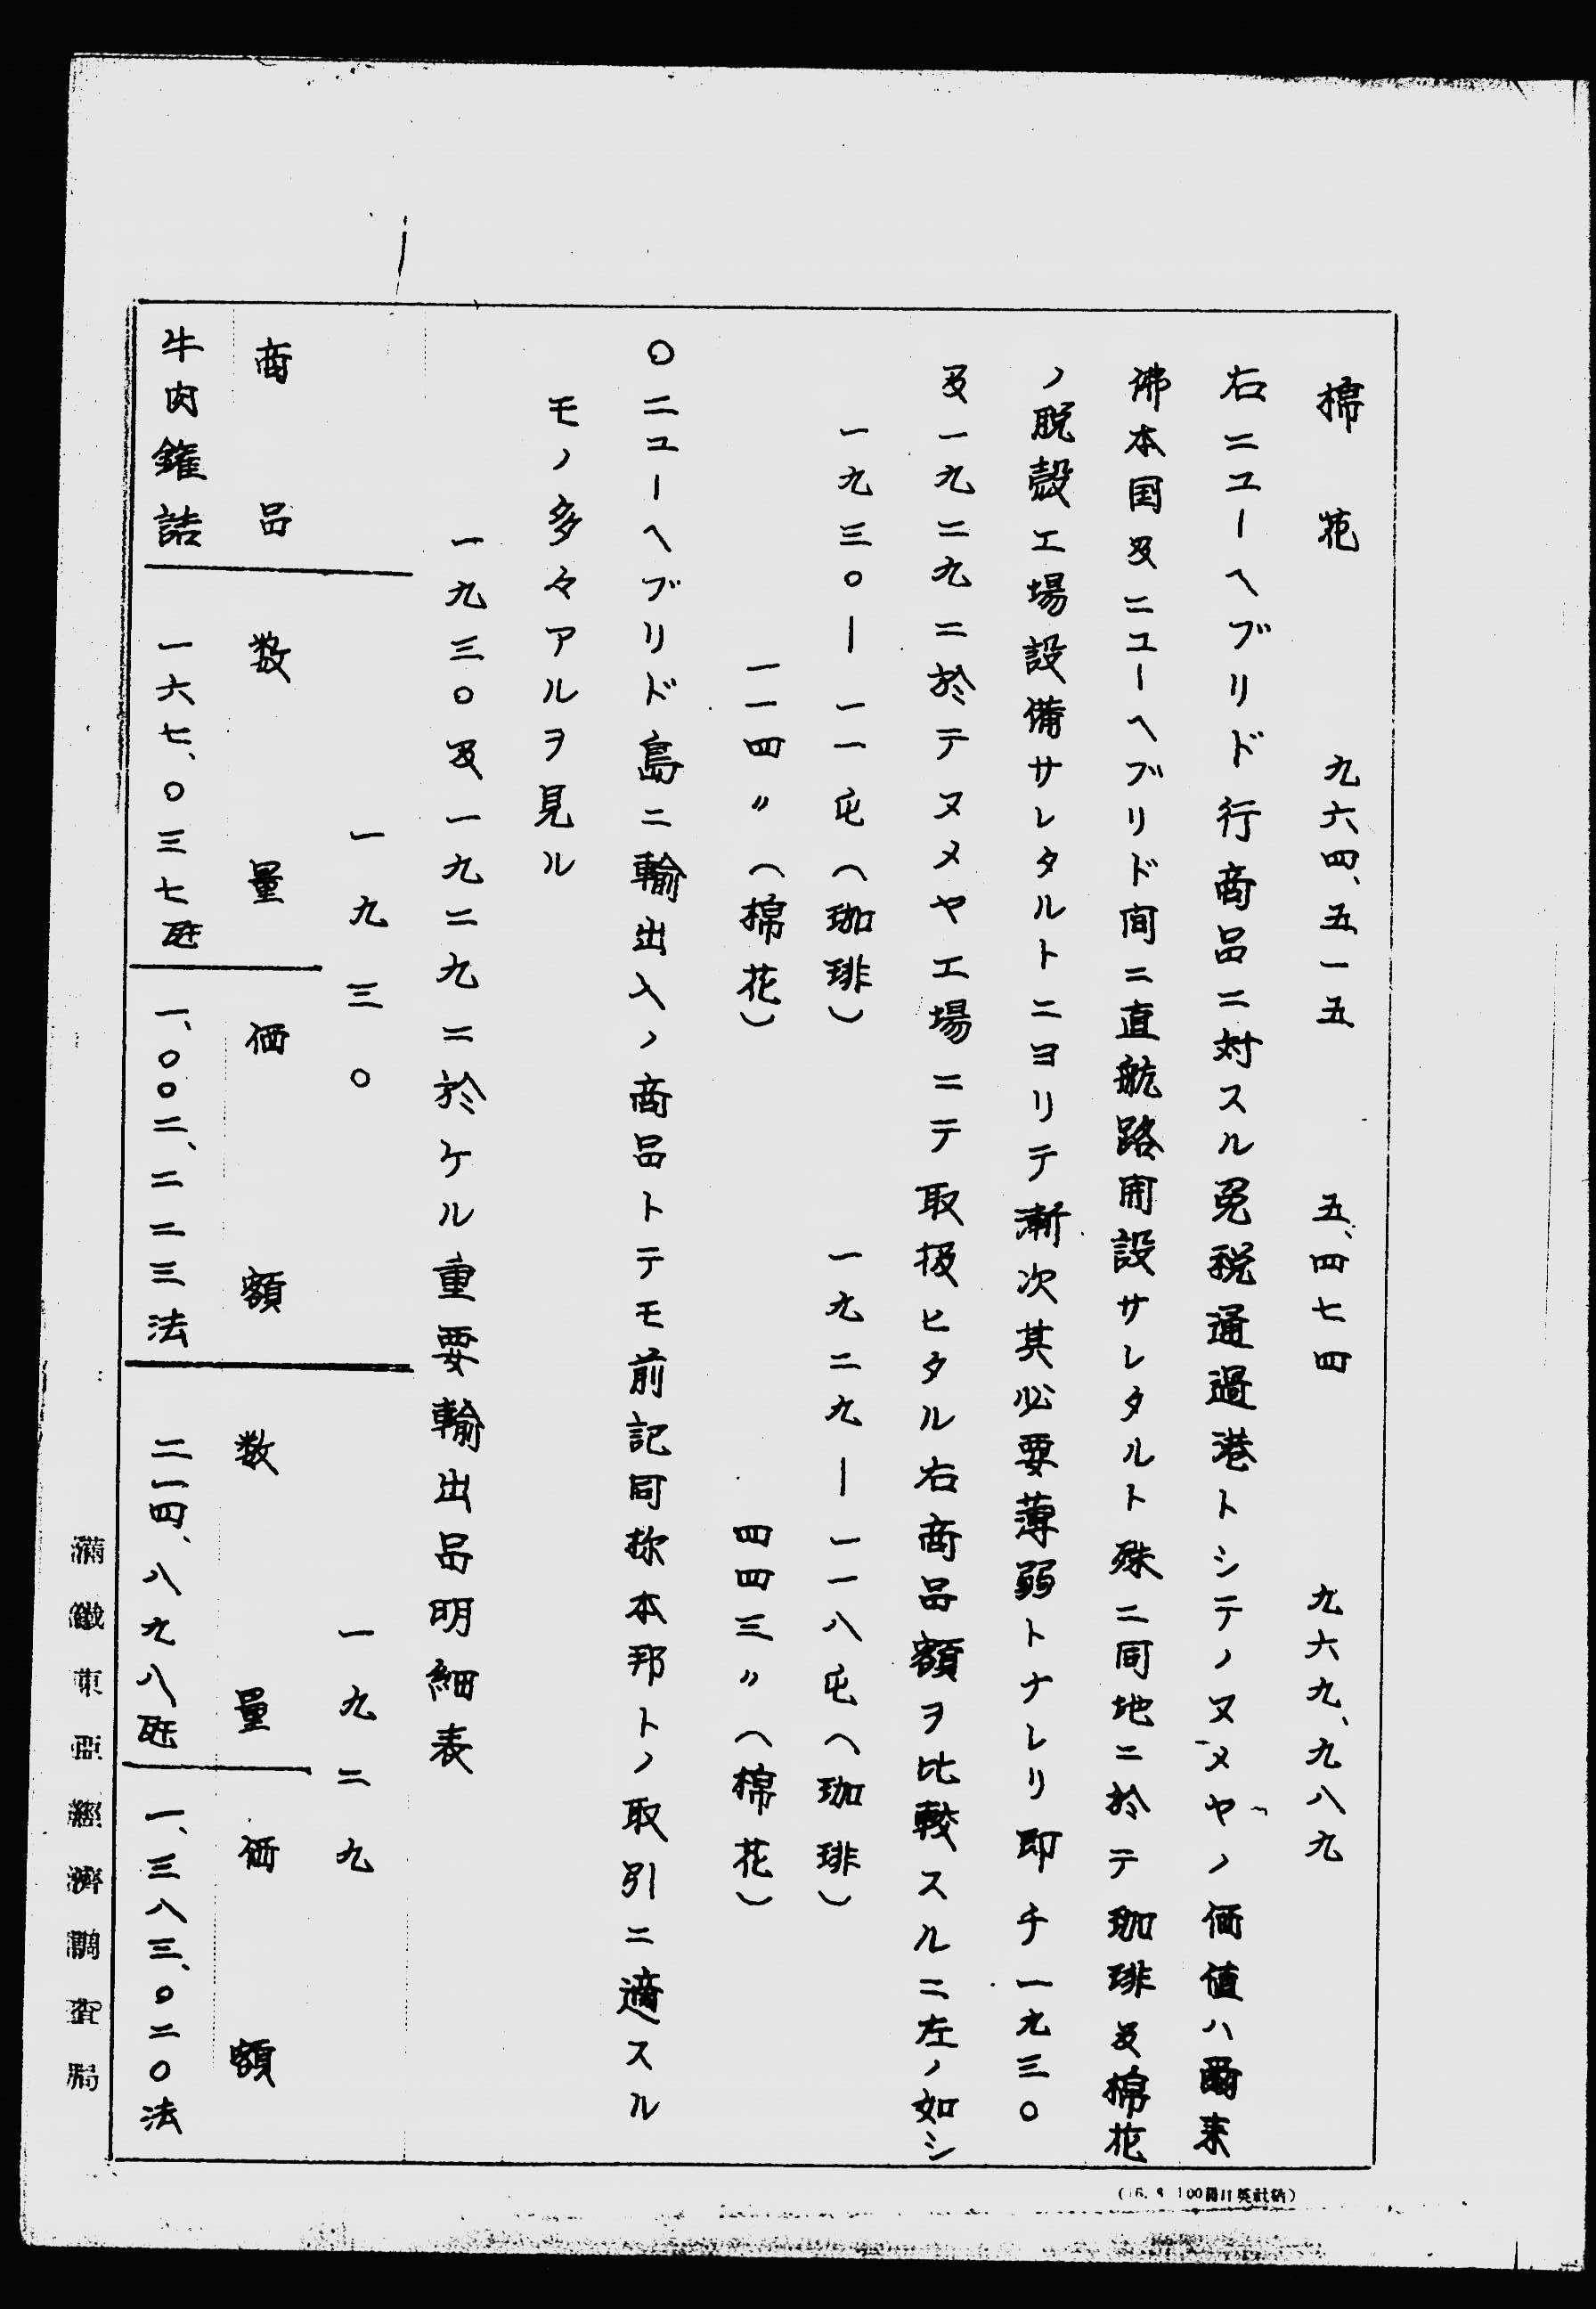 棉花　九六四、五一五　五、四七四　九六九、九八九
右ニユーヘブリド行商品ニ対スル免税通過港トシテノヌメヤノ価値ハ爾来
佛本国及ニユーヘブリド間ニ直航路開設サレタルト殊ニ同地ニ於テ珈琲及棉花
ノ脱殻工場設備サレタルトニヨリテ漸次其必要薄弱トナレリ即チ一九三〇
及一九二九ニ於テヌメヤ工場ニテ取扱ヒタル右商品額ヲ比較スルニ左ノ如シ
一九三〇―一一屯(珈琲)　一九二九―一一八屯(珈琲)
一一四〃(棉花)　四四三〃(棉花)
〇ニユーヘブリド島ニ輸出入ノ商品トテモ前記同様本邦トノ取引ニ適スル
モノ多々アルヲ見ル
一九三〇及一九二九ニ於ケル重要輸出品明細表
一九三〇　一九二九
商品　数量　価額　数量　価額
牛肉鑵詰　一六七、〇三七瓩　一、〇〇二、二二三法　二一四、八九八瓩　一、三八三、〇二〇法
滿鐵東亞經濟調査局